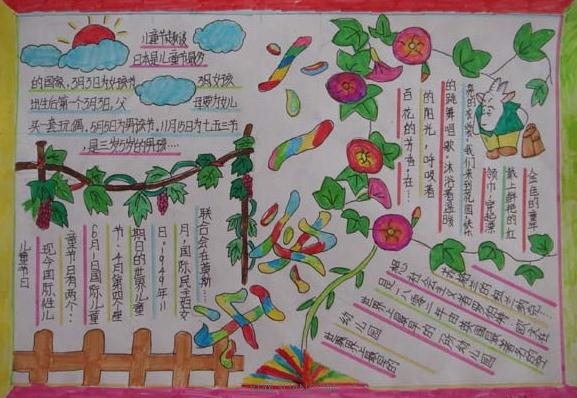 儿童节趣谈
日本是儿童节最多
的国家，3月3日为女孩节
3月女孩
出生后第一个3月3日，父
母要为女儿
买一套玩偶，5月5日为男孩节，11月15日为七五三节
，是三岁5岁的男孩…
儿童节日
现今国际性儿
童节日有两个：
6月1日国际儿童
节，4月第四个星
期日的世界儿童
日。1949年11
月，国际民主妇女
联合会在莫斯…
金色的童年
戴上鲜艳的红
领巾，穿起漂
亮的衣裳，我们来到花园，快乐
的跳舞唱歌，沐浴着温暖
的阳光，呼吸着
百花的芳香，在…
世界上最早的
幼儿园
世界上最早的一所幼儿园
是一八零二年由英国最著名的空
想社会主义者罗伯特·欧文在
苏格兰的纽兰纳克…